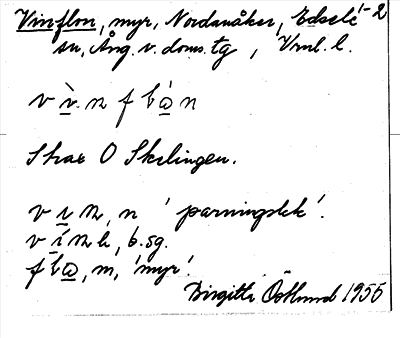 Vinflon, myr, Nordanåker, Edsele -2
sn, Ång. v. doms. tg, Vrnl. l.
v ì. n f l ȧ n
Strax O Skelingen.
v i n, n 'parningslek'.
v í n e, b. sg.
f l a, m, 'myr'.
Birgitta Östlund 1955